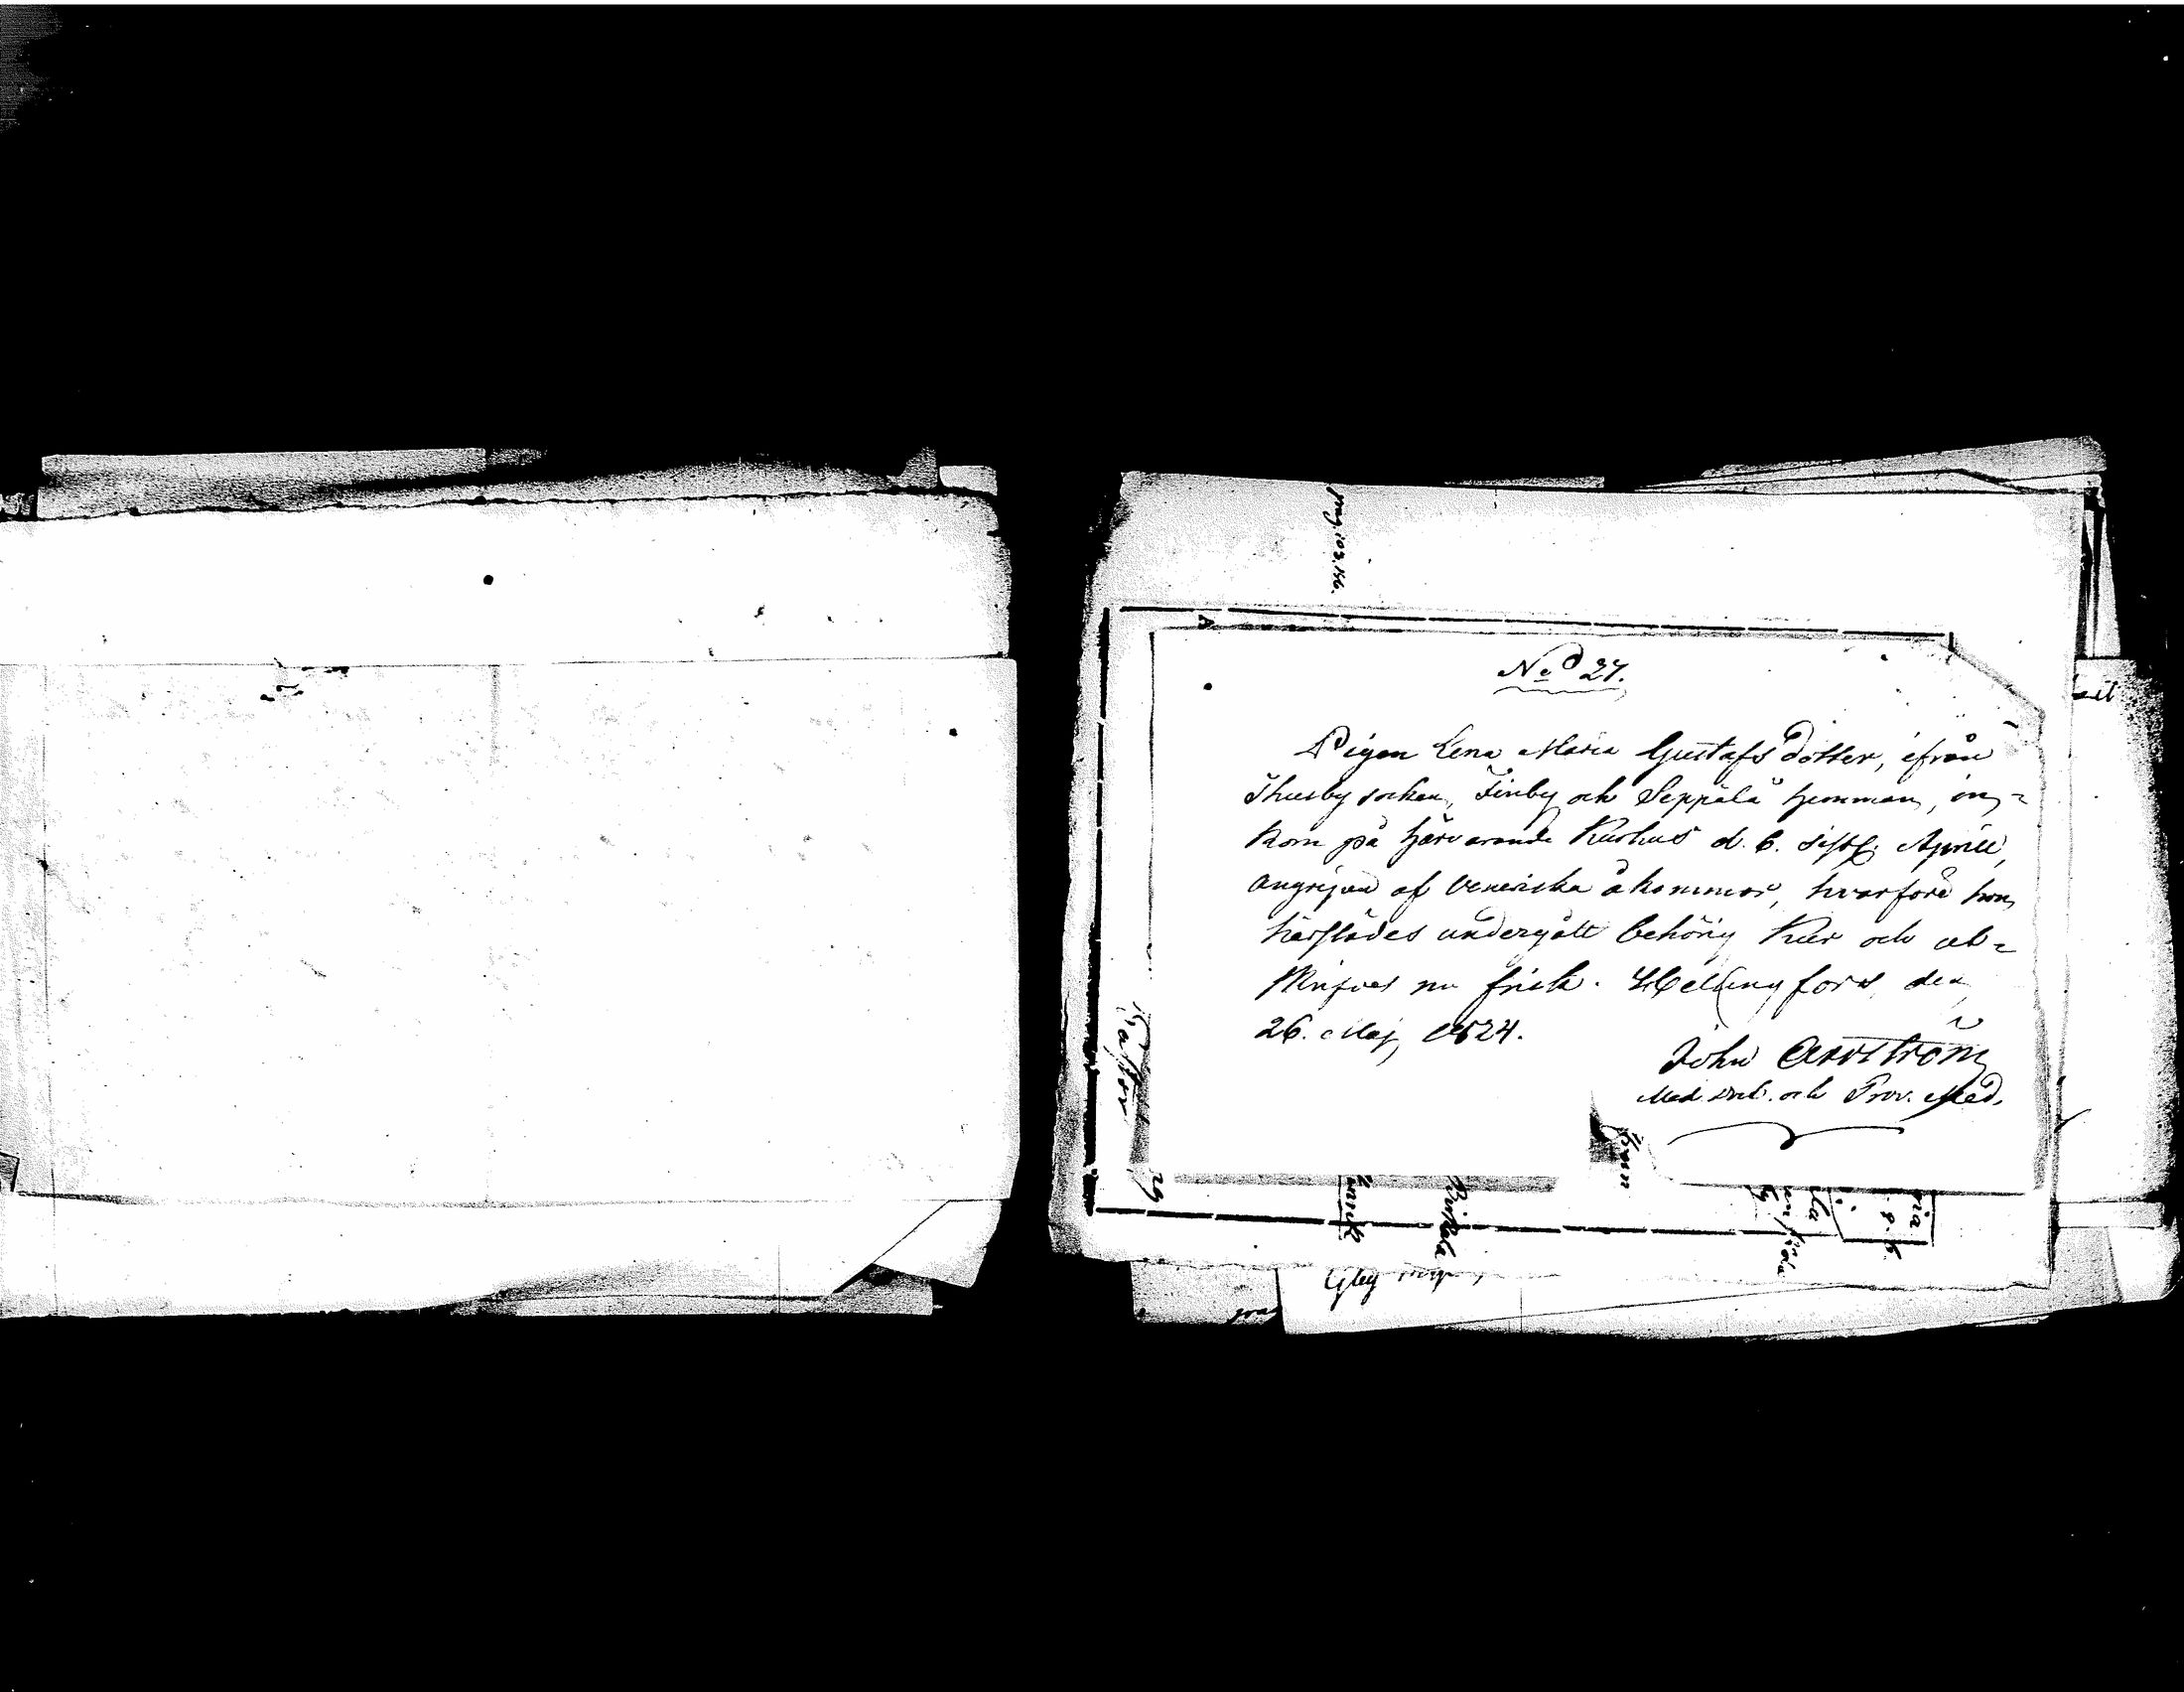 No 27.
Pigan Lena Maria Gustafsdotter, ifrån
Thusby socken, Finby och Seppälä hemman, in=
kom på härvarande Kurhus d. 6. sistl. Aprill,
angripen af Veneriska åkommor, hvarföre hon
härstädes undergått behörig Kur och ut=
skrifves nu frisk. Helsingfors den
26. Maj 1824.
John Arnström
Med. Doct. och Prov. Med.